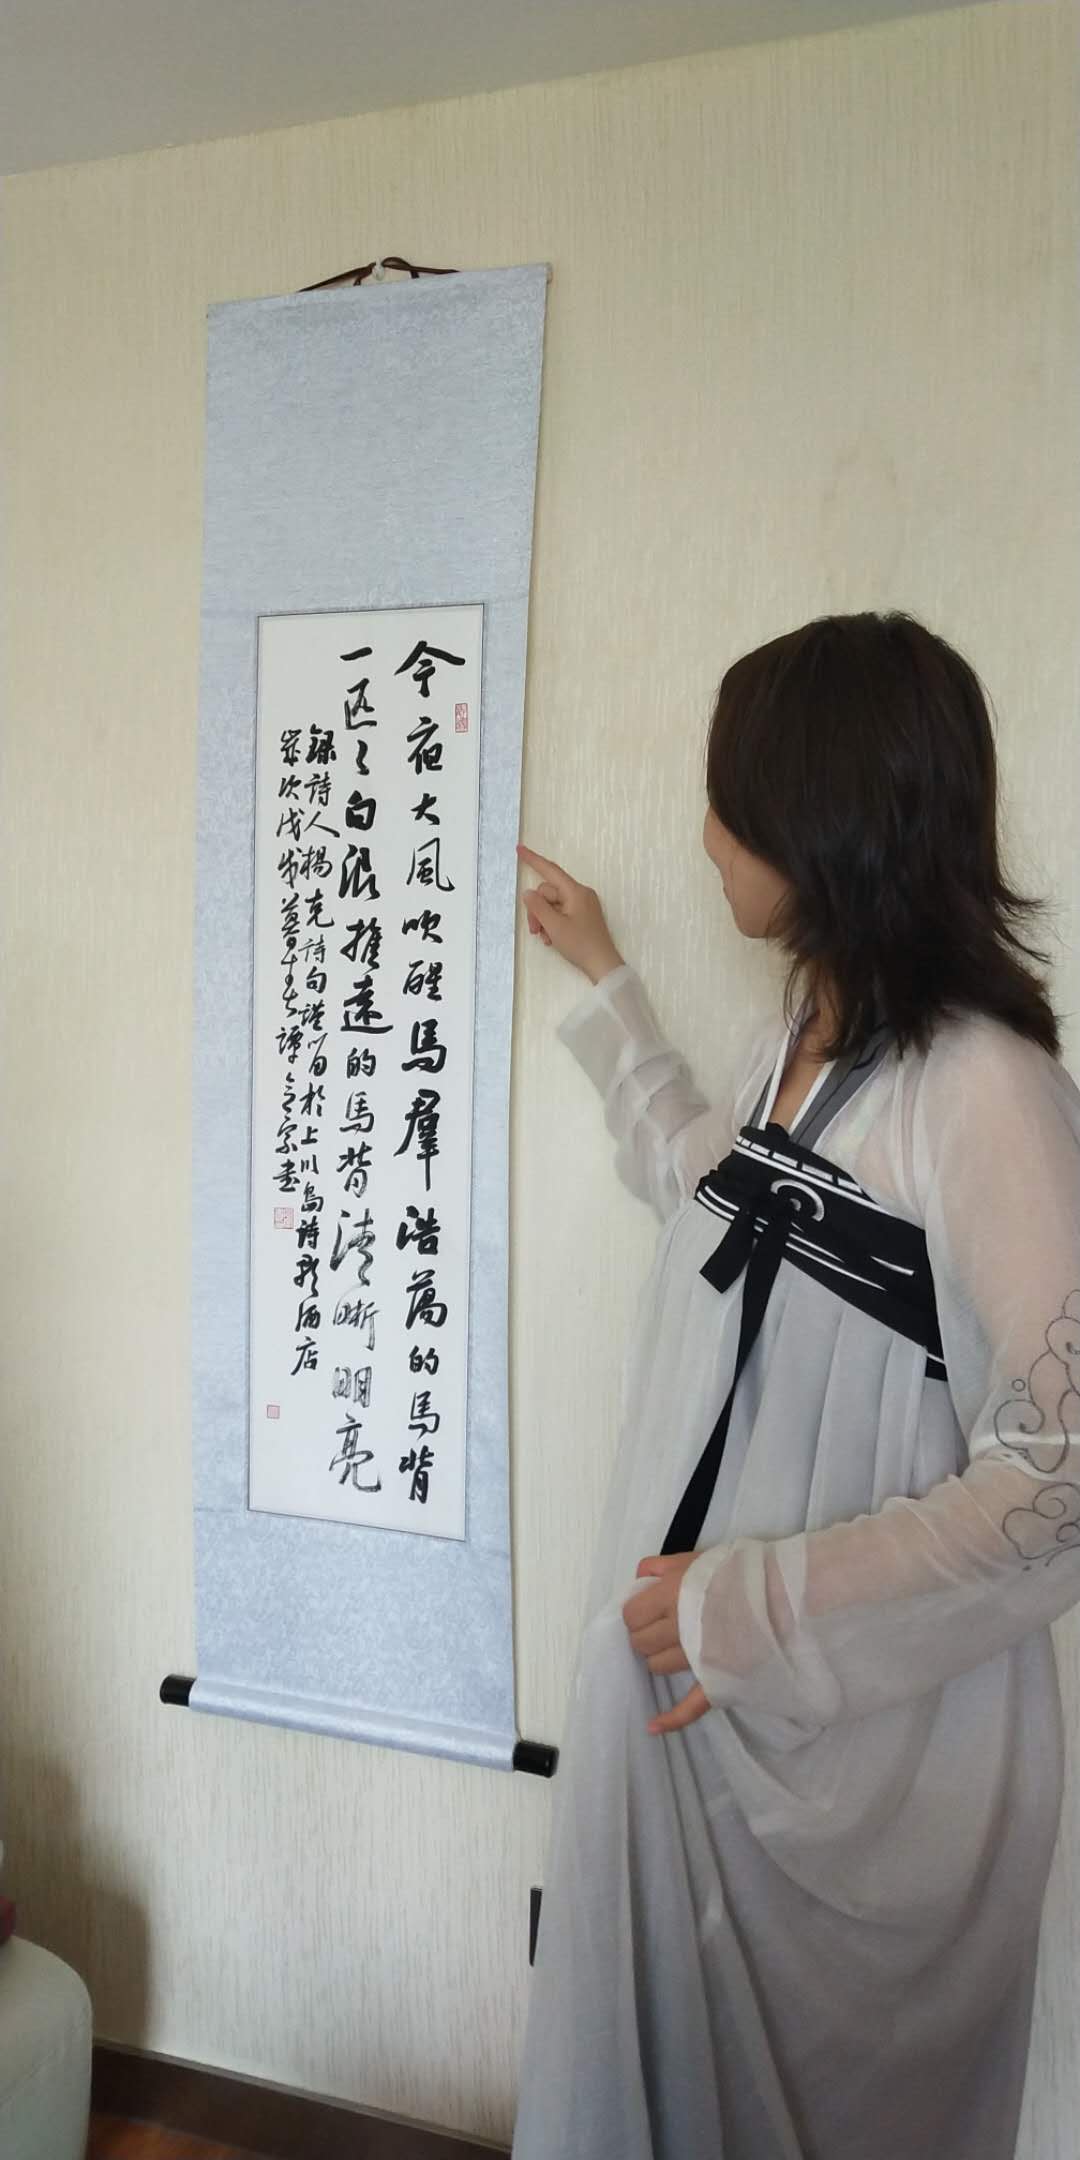 今夜大風吹醒馬羣浩蕩的馬背
一匹々白浪推遠的馬背清晰明亮
録詩人楊克詩句謹留於上川島詩歌酒店
歲次戊戌暮春譚書